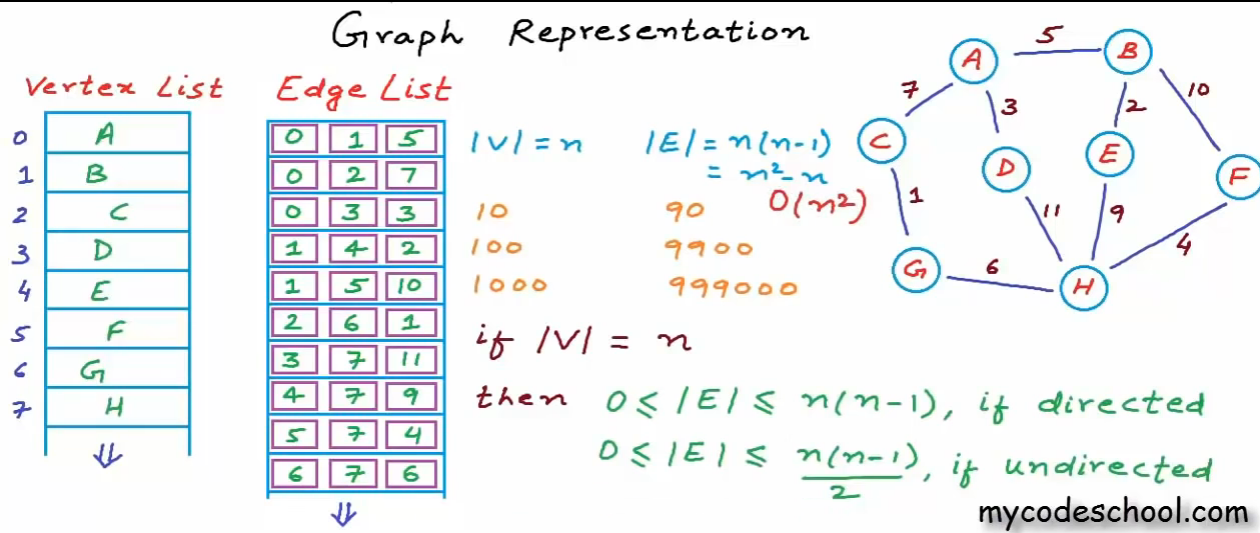 Graph Representation
Vertex List
0 A
1 B
2 C
3 D
4 E
5 F
6 G
7 H
Edge List
0 1 5
0 2 7
0 3 3
1 4 2
1 5 10
2 6 1
3 7 11
4 7 9
5 7 4
6 7 6
|V| = n |E| = n(n-1)
= n²-n
O(n²)
10 90
100 9900
1000 999000
if |V| = n
then 0 ≤ |E| ≤ n(n-1), if directed
0 ≤ |E| ≤ n(n-1)/2, if undirected
A 5 B
7 3 2 10
C D E F
1 11 9 4
G 6 H
mycodeschool.com